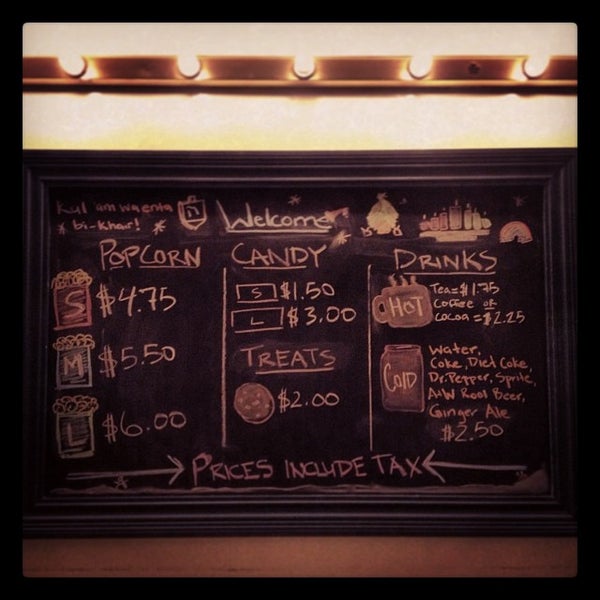 Kul 'am wa enta
bi-khair!
Welcome
POPCORN
S $4.75
M $5.50
L $6.00
CANDY
S $1.50
L $3.00
TREATS
$2.00
DRINKS
HOT
Tea=$1.75
Coffee or
Cocoa=$2.25
COLD
Water,
Coke, Diet Coke,
Dr. Pepper, Sprite,
A+W Root Beer,
Ginger Ale
$2.50
PRICES INCLUDE TAX